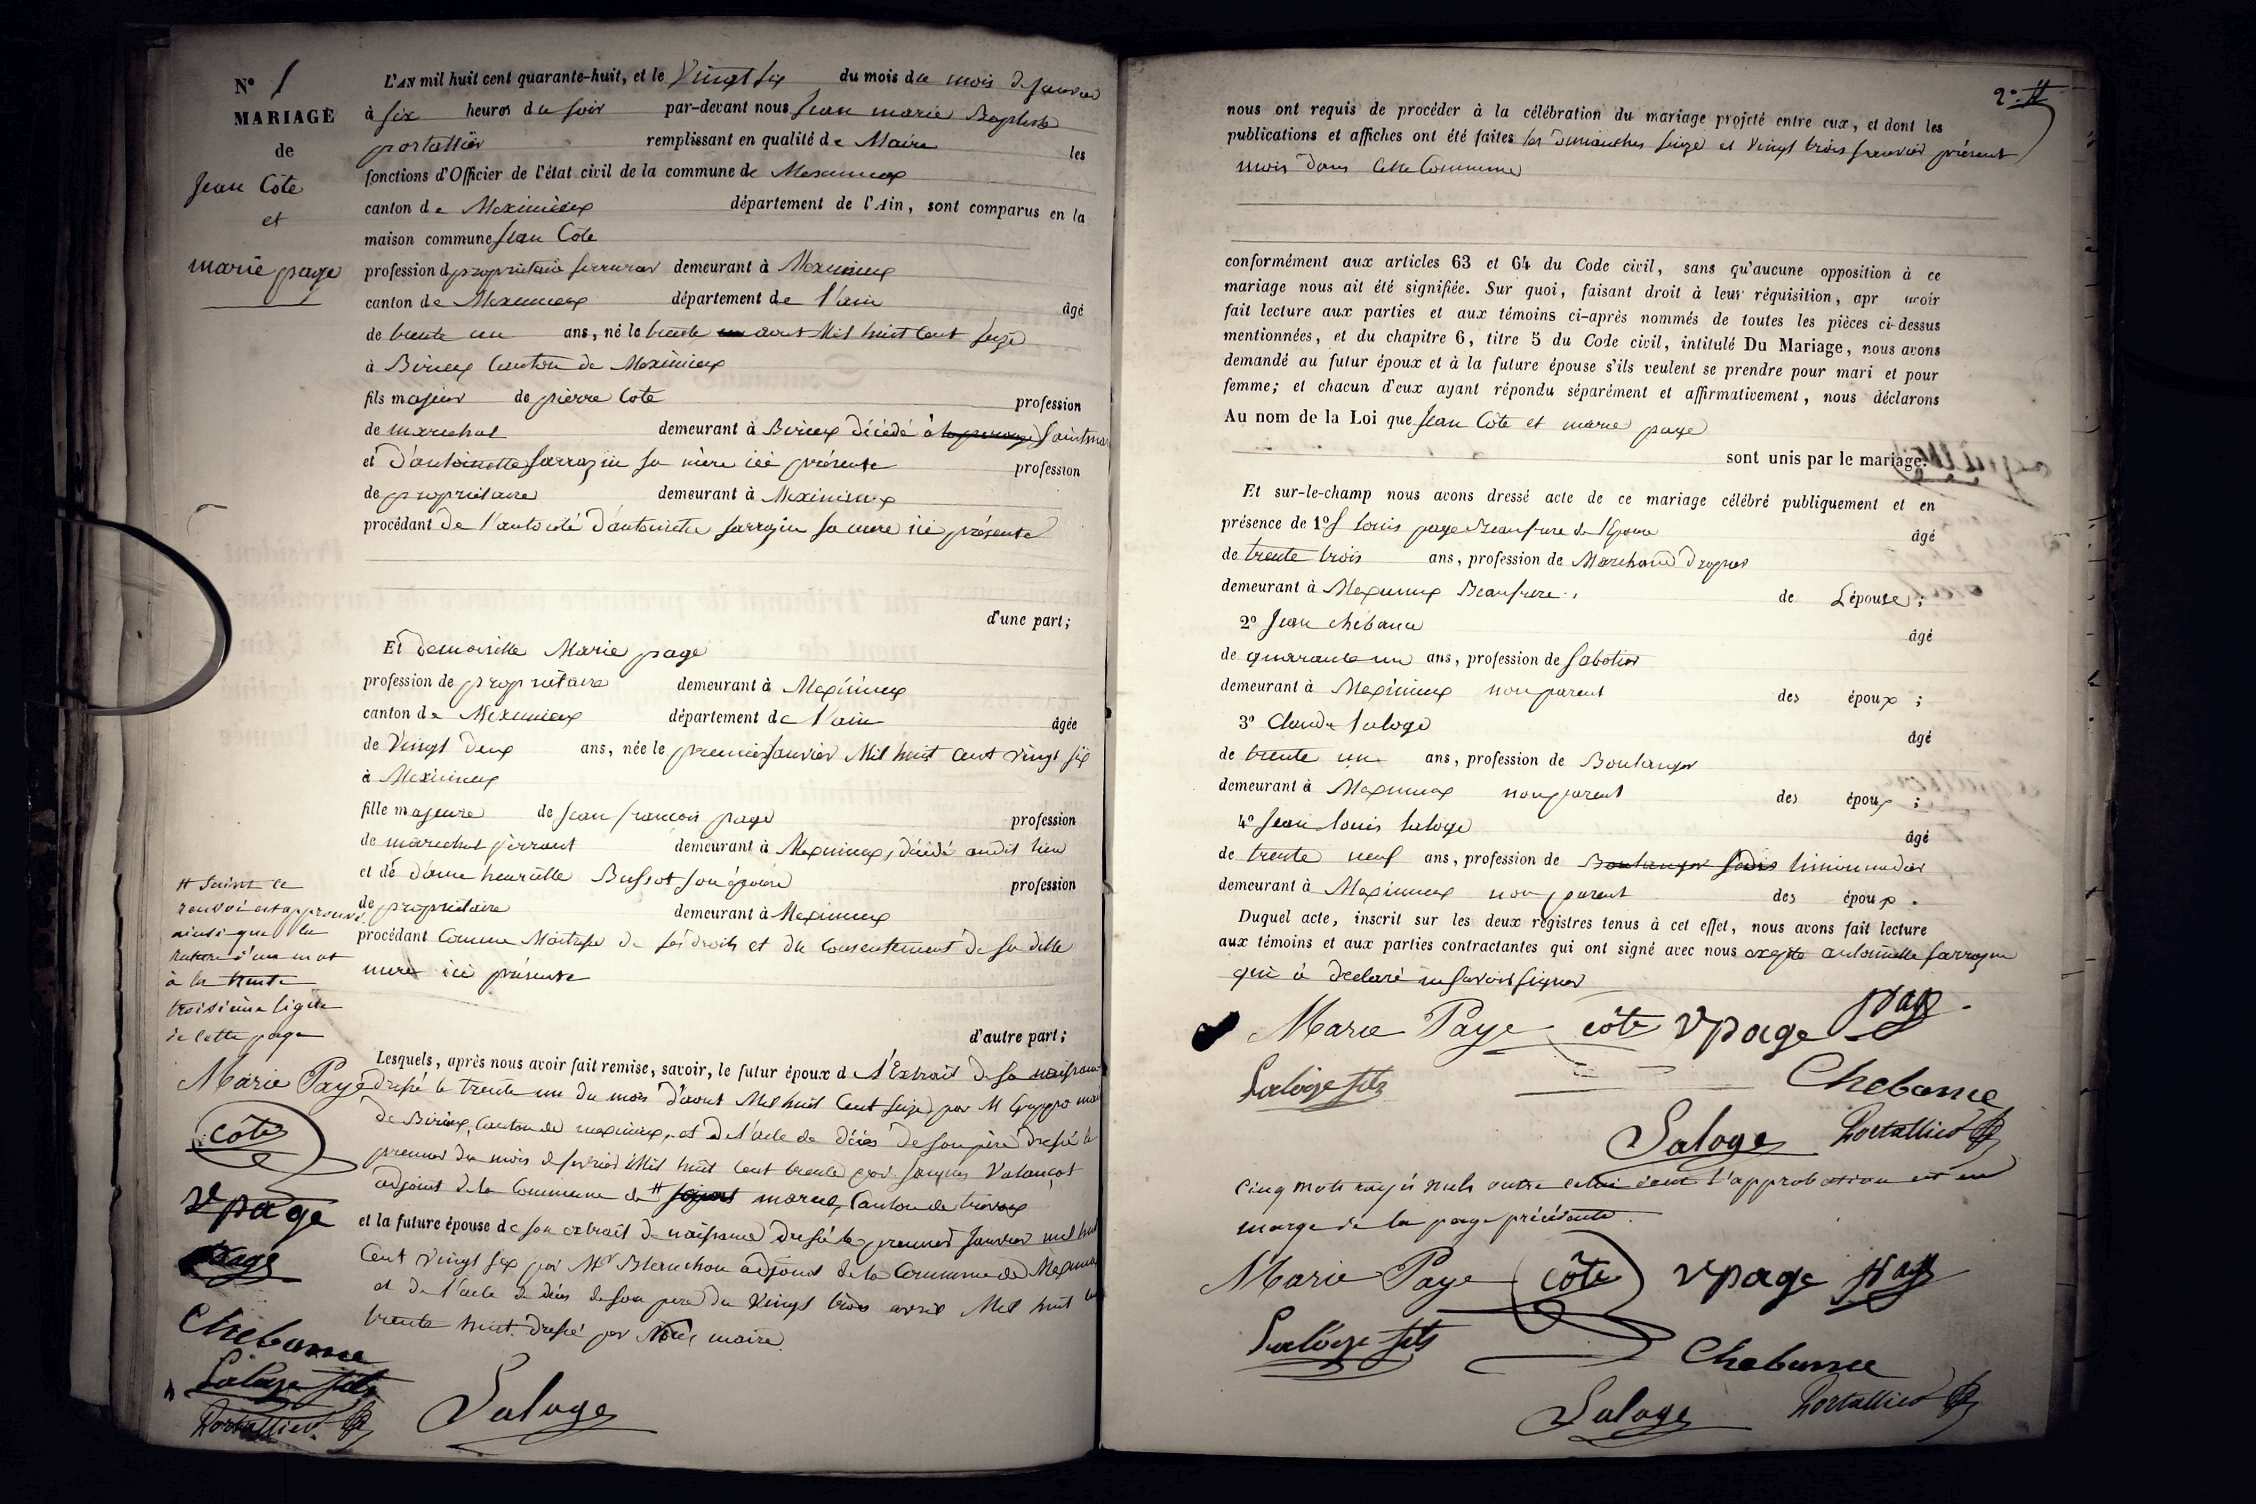 N° 1
MARIAGE
de
Jean Côte
et
marie page
L'AN mil huit cent quarante-huit, et le Vingt six du mois du mois de Janvier
à six heures du soir par-devant nous Jean marie Baptiste
portallier remplissant en qualité de Maire les
fonctions d'Officier de l'état civil de la commune de Meximieux
canton de Meximieux département de l'Ain, sont comparus en la
maison commune Jean Cote
profession d propriétaire serrurier demeurant à Meximieux
canton de Meximieux département de l'ain âgé
de trente un ans, né le trente un aout Mil huit Cent Seize
à Birieux Canton de Meximieux
fils majeur de pierre Cote profession
de marechal demeurant à Birieux décédé à Saint mar
et d'antoinette Sarrazin sa mère ici présente profession
de propriétaire demeurant à Meximieux
procédant de l'autorité d'antoinette sarrazin sa mere ici présente
d'une part;
Et demoiselle Marie page
profession de propriétaire demeurant à Meximieux
canton de Meximieux département de l'ain âgée
de Vingt deux ans, née le premier Janvier Mil huit Cent vingt six
à Meximieux
fille majeure de Jean françois page profession
de marechal ferrant demeurant à Meximieux, décédé audit lieu
et de dame henriette Bussot son épouse profession
de propriétaire demeurant à Meximieux
procédant Comme Maitresse de ses droits et du Consentement de sa dite
mere ici présente
d'autre part;
Lesquels, après nous avoir fait remise, savoir, le futur époux de l'Extrait de sa naissance
dressé le trente un du mois d'aout Mil huit Cent Seize par M mai
de Birieux, Canton de meximieux, et de l'acte de décès de son père dressé le
premier du mois de fevrier Mil huit Cent trente par Jacques Valançot
adjoint de la Commune de # marcel, Canton de trevoux
et la future épouse de son extrait de naissance dressé le premier Janvier mil huit
Cent vingt six par Mr Blanchon adjoint de la Commune de Meximieux
et de l'acte de décès de son pere du Vingt trois avril Mil huit C
trente huit. dressé par Nous maire.
# Saint ce
renvoi est approuvé
ainsi que la
rature d'un mot
à la trente
troisième ligne
de cette page
Marie Paye
côte
vpage
page
Chebance
Laloge fils
Portallier
Laloge
2e #
nous ont requis de procéder à la célébration du mariage projeté entre eux, et dont les
publications et affiches ont été faites les dimanches seize et vingt trois Janvier présent
mois dans Cette Commune
conformément aux articles 63 et 64 du Code civil, sans qu'aucune opposition à ce
mariage nous ait été signifiée. Sur quoi, faisant droit à leur réquisition, apr avoir
fait lecture aux parties et aux témoins ci-après nommés de toutes les pièces ci-dessus
mentionnées, et du chapitre 6, titre 5 du Code civil, intitulé Du Mariage, nous avons
demandé au futur époux et à la future épouse s'ils veulent se prendre pour mari et pour
femme; et chacun d'eux ayant répondu séparément et affirmativement, nous déclarons
Au nom de la Loi que Jean Côte et marie page
sont unis par le mariage.
Et sur-le-champ nous avons dressé acte de ce mariage célébré publiquement et en
présence de 1° louis page Beaufrere de l'Epouse âgé
de trente trois ans, profession de Marchand drapier
demeurant à Meximieux Beaufrere. de L'épouse;
2° Jean chebance âgé
de quarante un ans, profession de Sabotier
demeurant à Meximieux non parent des époux;
3° Claude laloge âgé
de trente un ans, profession de Boulanger
demeurant à Meximieux non parent des époux;
4° Jean louis laloge âgé
de trente neuf ans, profession de Boulanger limonnadier
demeurant à Meximieux non parent des époux.
Duquel acte, inscrit sur les deux registres tenus à cet effet, nous avons fait lecture
aux témoins et aux parties contractantes qui ont signé avec nous excepté antoinette Sarrazin
qui à declaré ne savoir signer
Marie Paye côte vpage page
Laloge fils Chebance
Laloge Portallier
Cinq mots rayés nuls outre celui dont l'approbation est en
marge de la page précédente.
Marie Paye côte vpage page
Laloge fils Chebance
Laloge Portallier